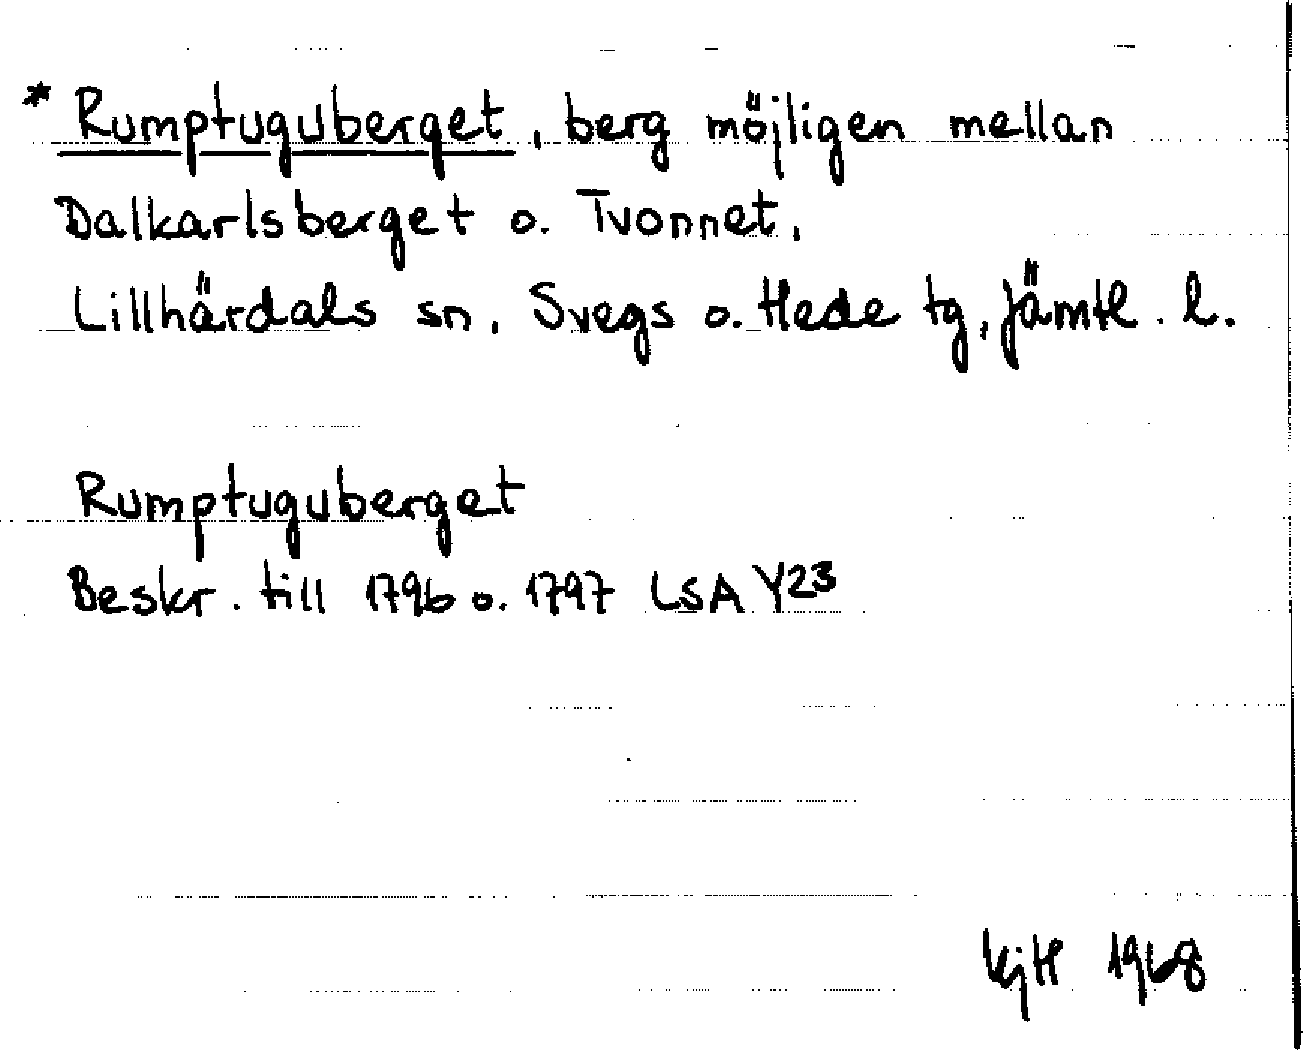 * Rumptuguberget, berg möjligen mellan
Dalkarlsberget o. Tvonnet,
Lillhärdals sn, Svegs o. Hede tg, Jämtl. l.
Rumptuguberget
Beskr. till 1796 o. 1797 LSA Y23
KjH 1968